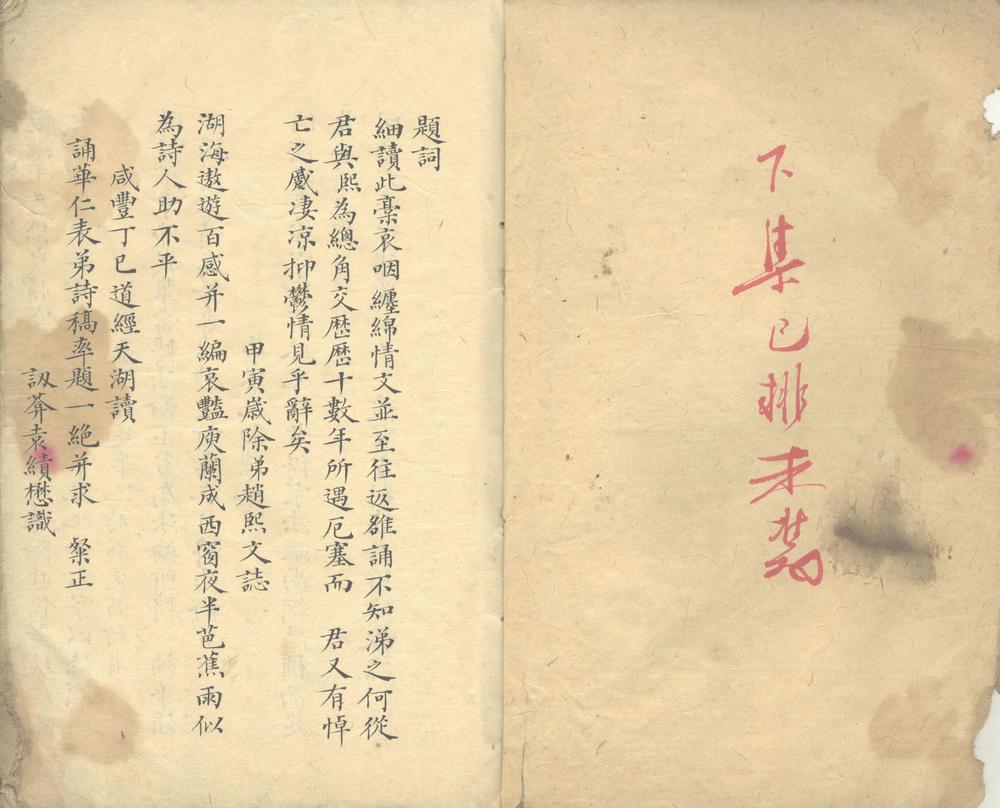 下集已排未裝
題詞
細讀此稾哀咽纏綿情文並至往返雒誦不知涕之何從
君與熙為總角交歴歴十數年所遇厄塞而 君又有悼
亡之戚凄凉抑鬱情見乎辭矣
甲寅歳除弟趙熙文誌
湖海遨遊百感并一編哀豔庾蘭成西窗夜半芭蕉雨似
為詩人助不平
咸豐丁巳道經天湖讀
誦華仁表弟詩稿率題一絶并求 粲正
訒葊袁績懋識